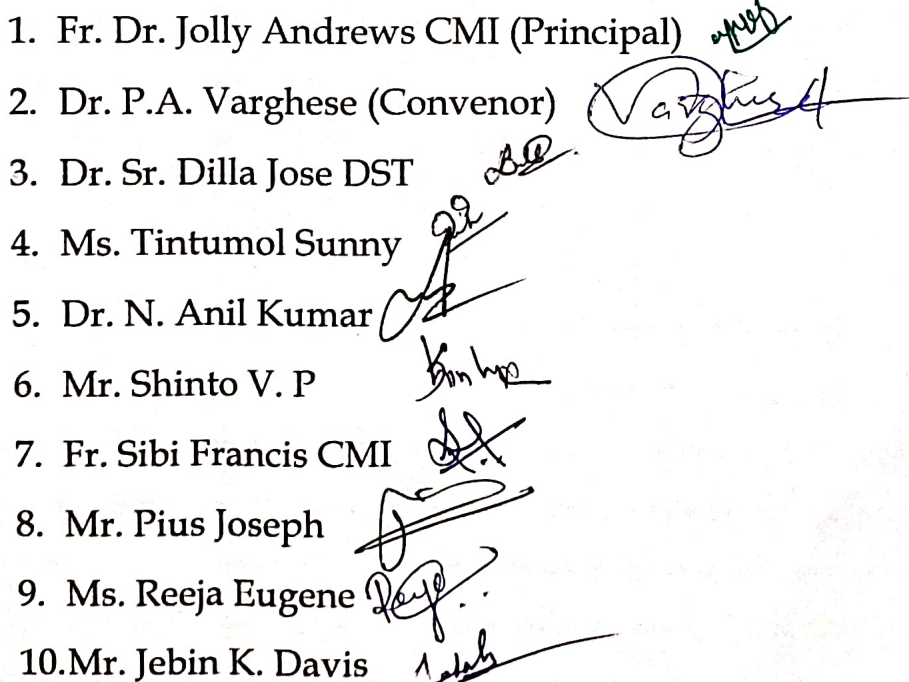 1. Fr. Dr. Jolly Andrews CMI (Principal)
2. Dr. P.A. Varghese (Convenor) Varghese
3. Dr. Sr. Dilla Jose DST
4. Ms. Tintumol Sunny
5. Dr. N. Anil Kumar
6. Mr. Shinto V. P
7. Fr. Sibi Francis CMI
8. Mr. Pius Joseph
9. Ms. Reeja Eugene
10.Mr. Jebin K. Davis